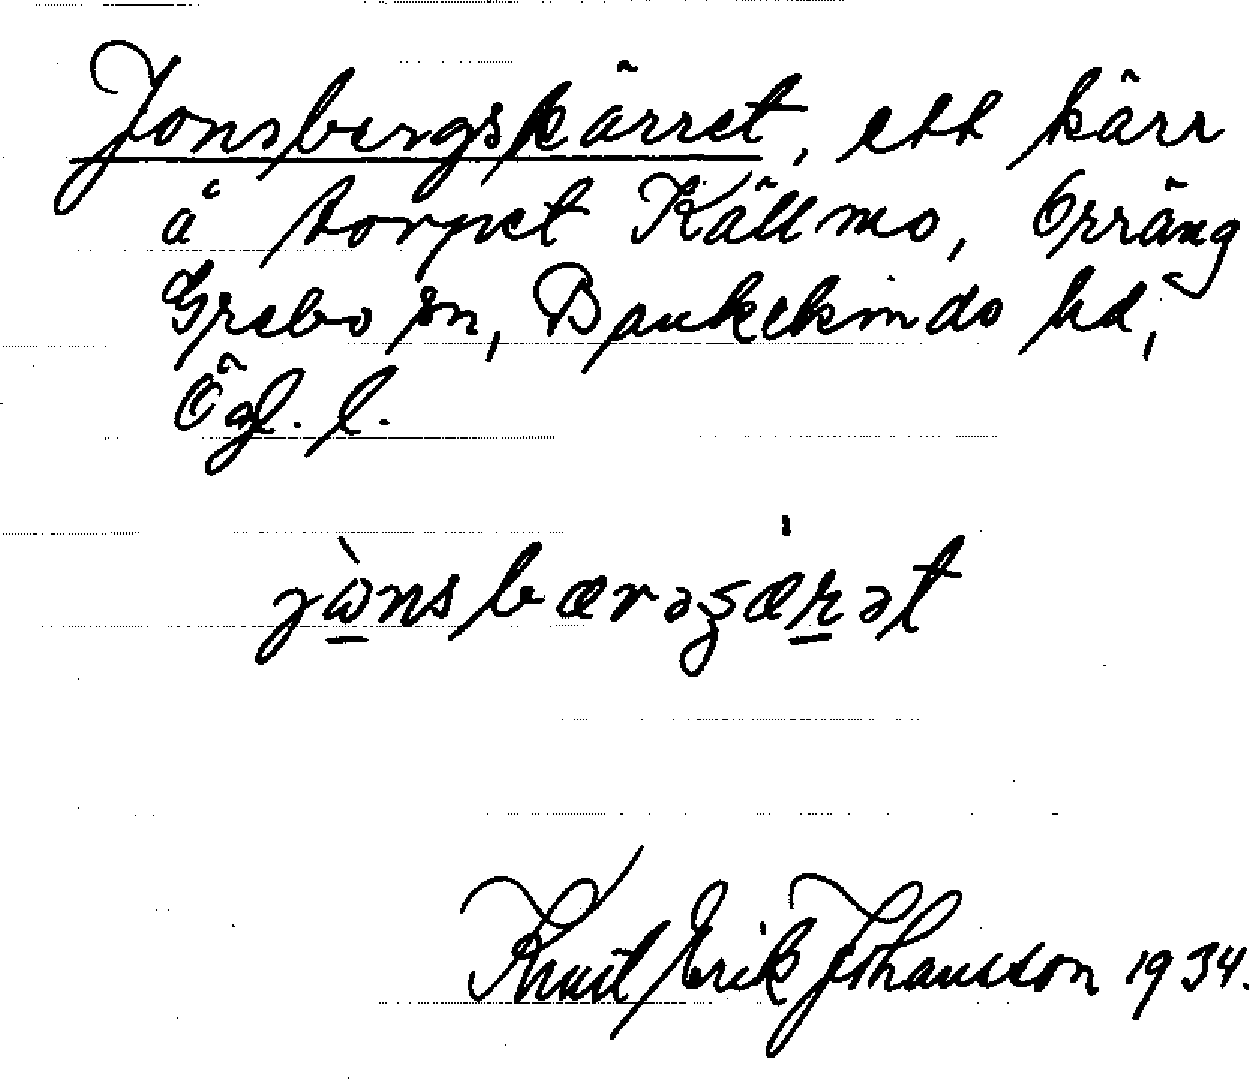 Jonsbergskärret, ett kärr
å torpet Källmo, Örräng
Grebo sn, Bankekinds hd,
Ögl. l.
Knut Erik Johansson 1934.